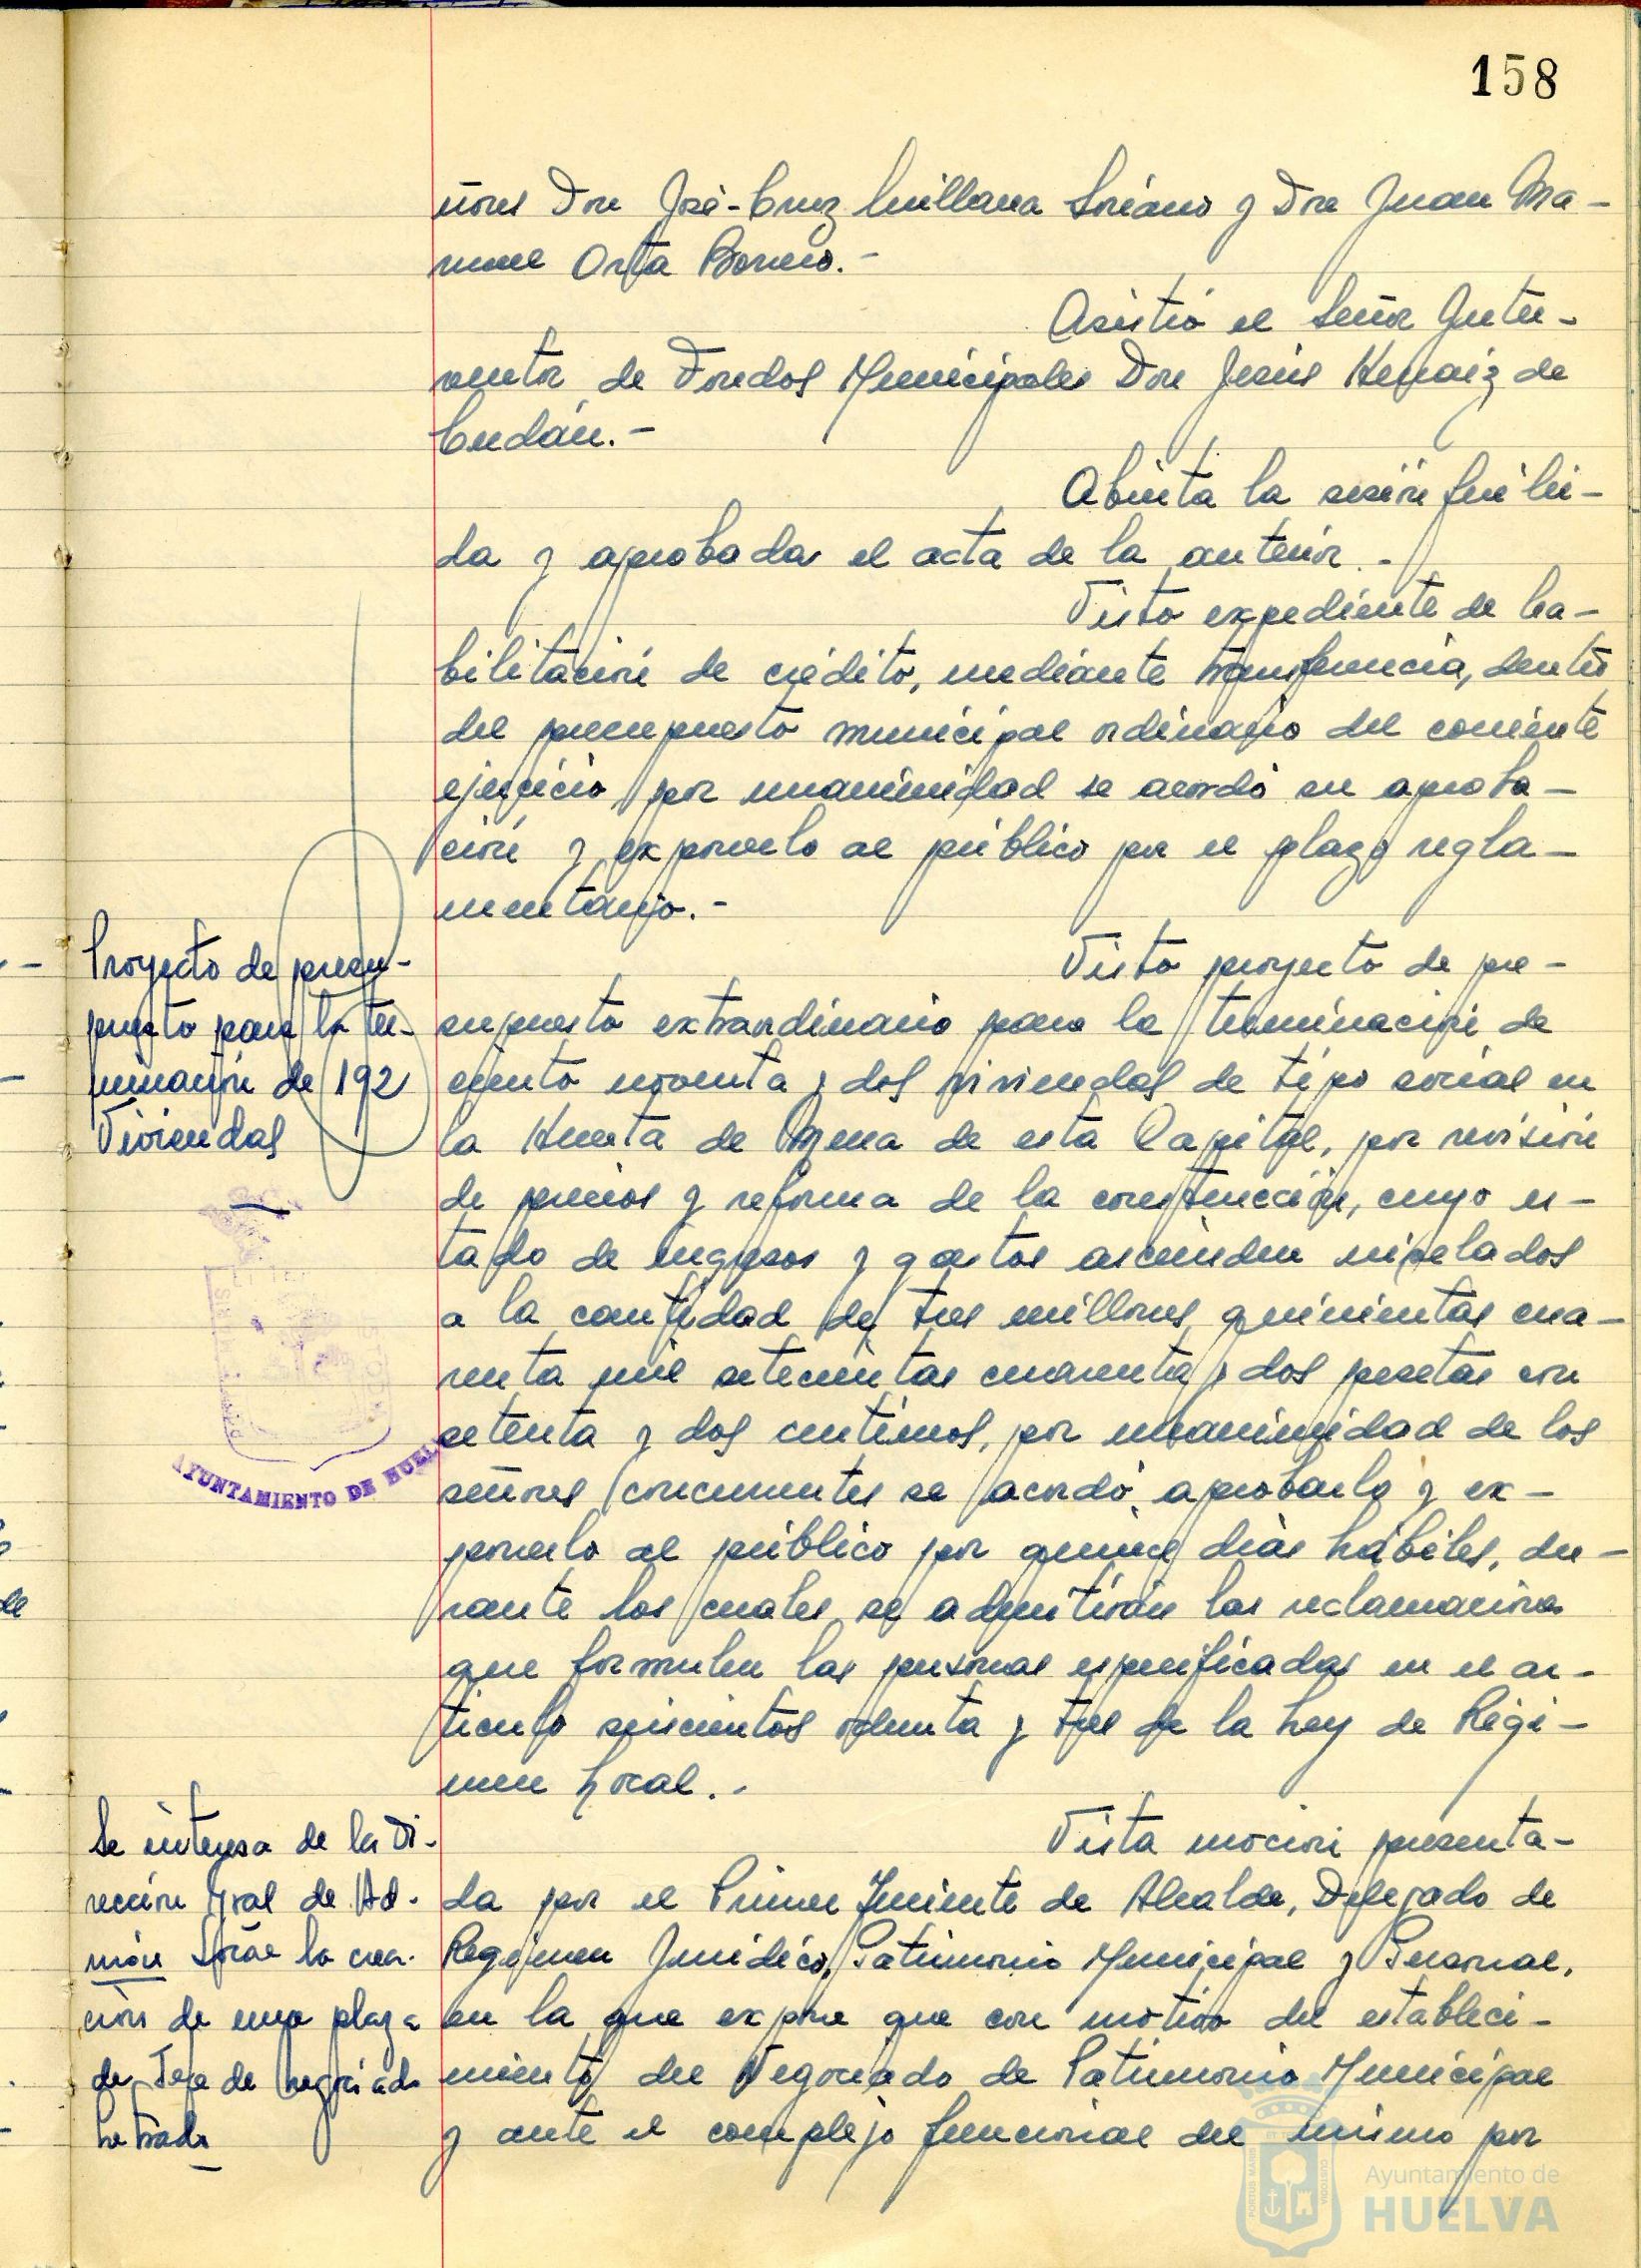 158
ñores Don José-Cruz Quillana Soriano y Don Juan Ma-
nuel Orta Borrero.-
Asistió el Señor Inter-
ventor de Fondos Municipales Don Jesús Hernáiz de
Cendán.-
Abierta la sesión fué leí-
da y aprobada el acta de la anterior.-
Visto expediente de ha-
bilitación de crédito, mediante transferencia, dentro
del presupuesto municipal ordinario del corriente
ejercicio, por unanimidad se acordó su aproba-
ción y exponerlo al público por el plazo regla-
mentario.-
Proyecto de presu-
puesto para la ter-
minación de 192
Viviendas
Visto proyecto de pre-
supuesto extraordinario para la terminación de
ciento noventa y dos viviendas de tipo social en
la Huerta de Mena de esta Capital, por revisión
de precios y reforma de la construcción, cuyo es-
tado de ingresos y gastos ascienden nivelados
a la cantidad de tres millones quinientas cua-
renta mil setecientas cuarenta y dos pesetas con
setenta y dos centimos, por unanimidad de los
señores concurrentes se acordó aprobarlo y ex-
ponerlo al público por quince días hábiles, du-
rante los cuales se admitirán las reclamaciones
que formulen las personas especificadas en el ar-
ticulo seiscientos ochenta y tres de la Ley de Régi-
men Local.-
AYUNTAMIENTO DE HUELVA
Se interesa de la Di-
rección Gral de Ad-
món Local la crea-
ción de una plaza
de Jefe de negociado
Letrado
Vista moción presenta-
da por el Primer Teniente de Alcalde, Delegado de
Regimen Juridico, Patrimonio Municipal y Personal,
en la que expone que con motivo del estableci-
miento del Negociado de Patrimonio Municipal
y ante el complejo funcional del mismo por
Ayuntamiento de
HUELVA